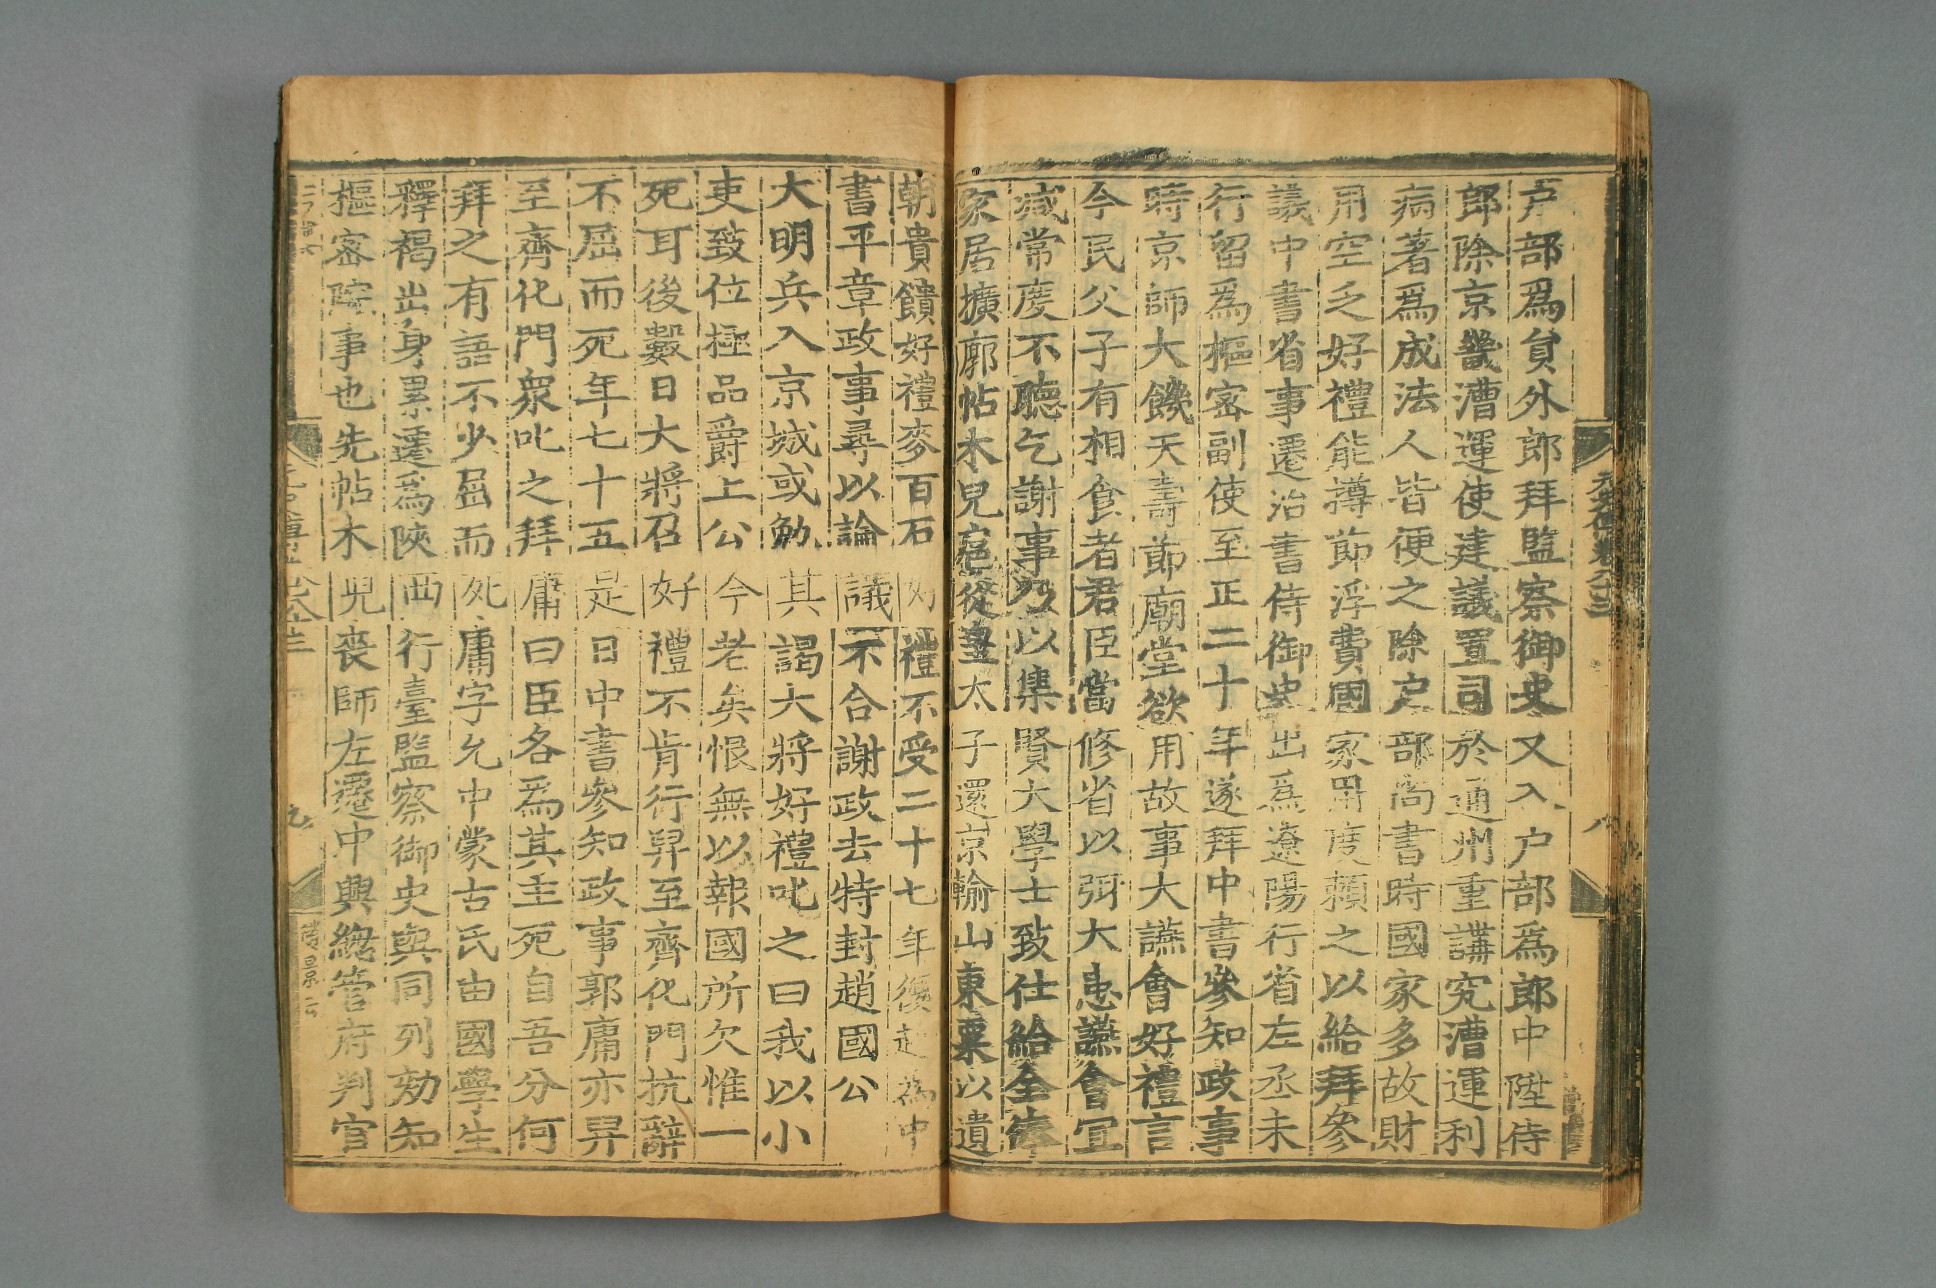 元史傳卷八十三
八
户部爲貟外郎拜監察御史又入户部爲郎中陞侍
郎除京畿漕運使建議置司於通州重講究漕運利
病著爲成法人皆便之除户部尚書時國家多故財
用空乏好禮能撙節浮費國家用度賴之以給拜參
議中書省事遷治書侍御史出爲遼陽行省左丞未
行留爲樞密副使至正二十年遂拜中書參知政事
時京師大饑天壽節廟堂欲用故事大讌會好禮言
今民父子有相食者君臣當修省以弭大患讌會宜
减常度不聽乞謝事乃以集賢大學士致仕給全俸
家居擴廓帖木兒扈從皇太子還京輸山東粟以遺
朝貴饋好禮麥百石好禮不受二十七年復起爲中
書平章政事尋以論議不合謝政去特封趙國公
大明兵入京城或勉其謁大將好禮叱之曰我以小
吏致位極品爵上公今老矣恨無以報國所欠惟一
死耳後數日大將召好禮不肯行舁至齊化門抗辭
不屈而死年七十五是日中書參知政事郭庸亦舁
至齊化門衆叱之拜庸曰臣各爲其主死自吾分何
拜之有語不少屈而死庸字允中蒙古氏由國學生
釋褐出身累遷爲陝西行臺監察御史與同列劾知
樞密院事也先帖木兒喪師左遷中興總管府判官
九